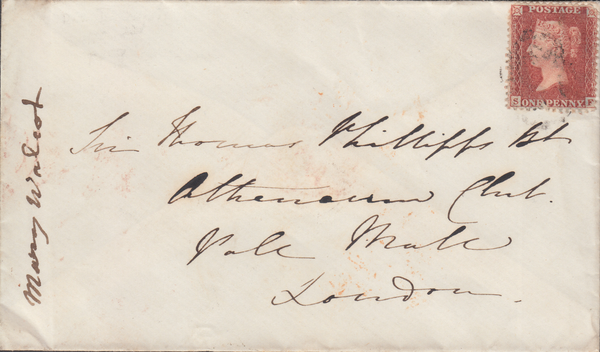 POSTAGE
ONE PENNY
S F
Sir Thomas Phillipps Bt
Athenaeum Club.
Pall Mall
London.
Mary Walcot